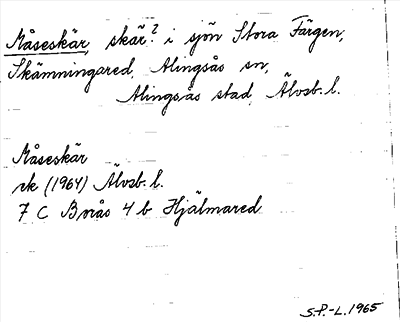 Måseskär, skär? i sjön Stora Färgen,
Skämningared, Alingsås sn,
Alingsås stad, Älvsb. l.
Måseskär
ek (1964) Älvsb. l.
7 C Borås 4 b Hjälmared
S.P.-L. 1965